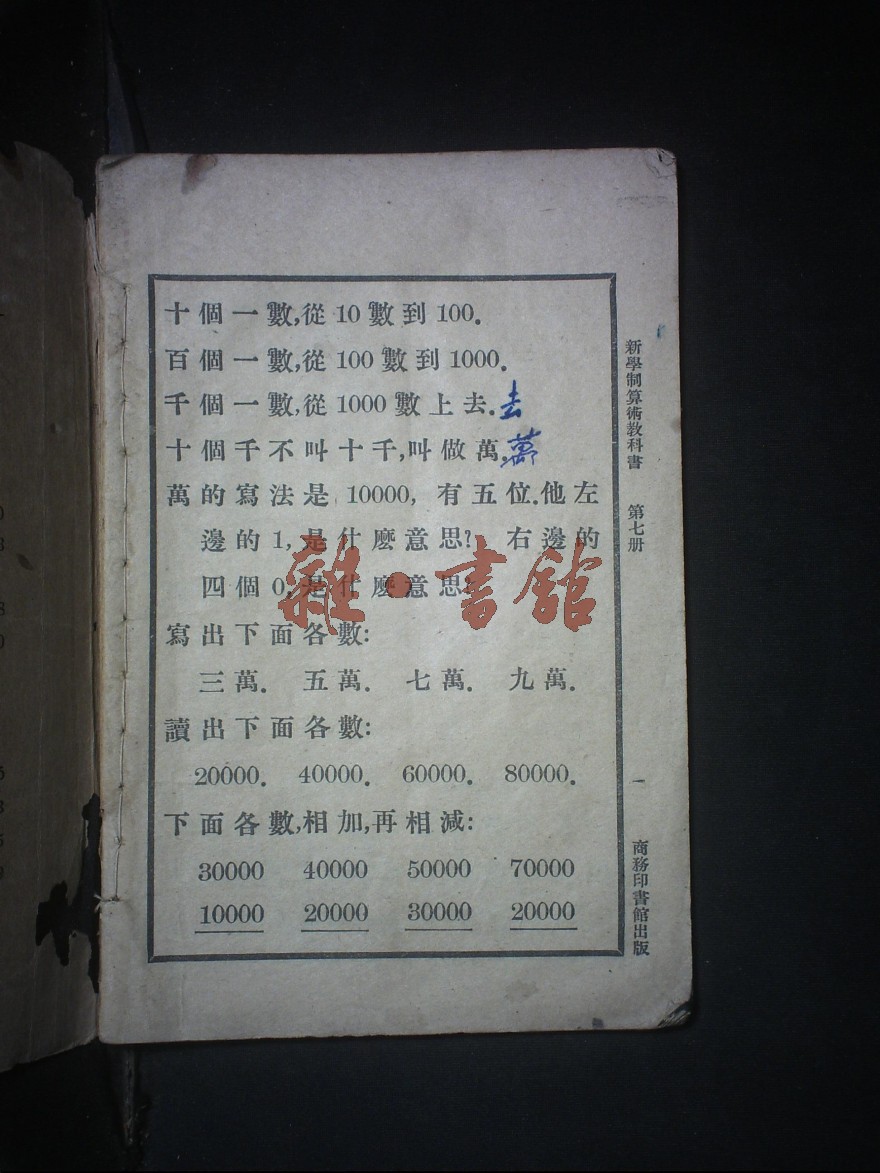 十個一數,從10數到100.
百個一數,從100數到1000.
千個一數,從1000數上去.去
十個千不叫十千,叫做萬.萬
萬的寫法是10000,有五位.他左
邊的1,是什麽意思?右邊的
四個0,是什麽意思?
寫出下面各數:
三萬. 五萬. 七萬. 九萬.
讀出下面各數:
20000. 40000. 60000. 80000.
下面各數,相加,再相減:
30000 40000 50000 70000
10000 20000 30000 20000
新學制算術教科書 第七册 一 商務印書館出版
雜·書館